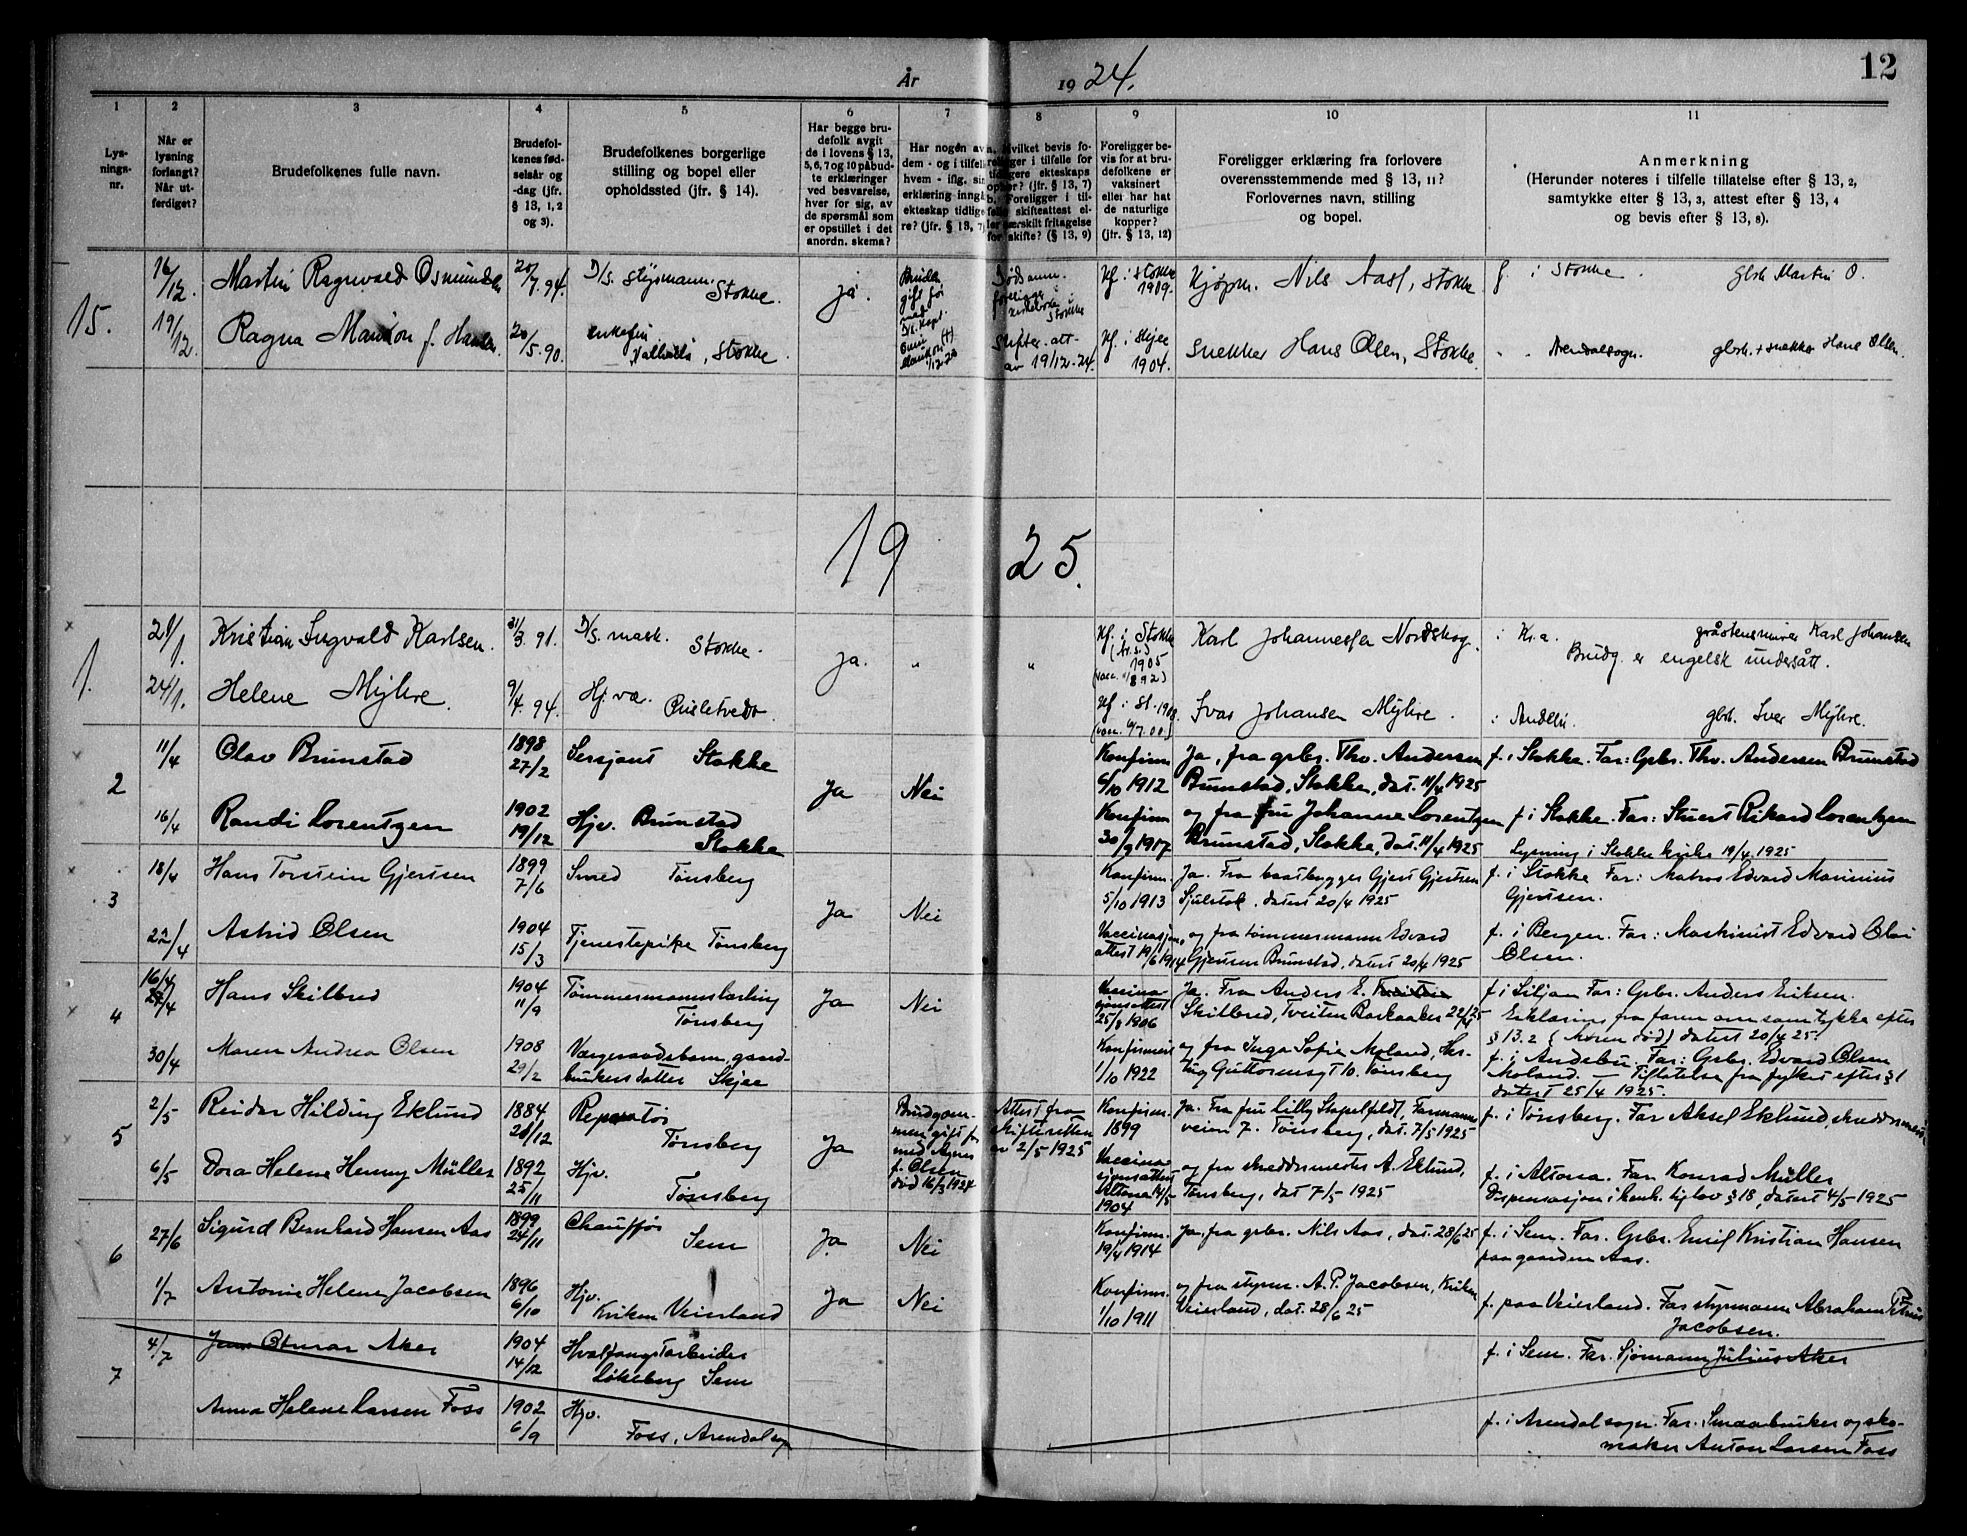 År 19 24.
12
1 2 3 4 5 6 7 8 9 10 11
Lys-
nings-
nr.
Når er
lysning
forlangt?
Når ut-
ferdiget?
Brudefolkenes fulle navn.
Brudefol-
kenes fød-
selsår og
-dag (jfr.
§ 13, 1, 2
og 3).
Brudefolkenes borgerlige
stilling og bopel eller
opholdssted (jfr. § 14).
Har begge bru-
defolk avgit
de i lovens § 13,
5, 6, 7 og 10 påbud-
te erklæringer
ved besvarelse,
hver for sig, av
de spørsmål som
er opstillet i det
anordn. skema?
Har nogen av
dem - og i tilfelle
hvem - iflg. sin
erklæring inngåt
ekteskap tidlige-
re? (jfr. § 13, 7)
a. Hvilket bevis fo-
religger i tilfelle for
tidligere ekteskaps
ophør? (jfr. § 13, 7)
b. Foreligger i til-
felle skifteattest el-
ler særskilt fritagelse
for skifte? (§ 13, 9)
Foreligger be-
vis for at bru-
defolkene er
vaksinert
eller har hat
de naturlige
kopper?
(jfr. § 13, 12)
Foreligger erklæring fra forlovere
overensstemmende med § 13, 11?
Forlovernes navn, stilling
og bopel.
Anmerkning
(Herunder noteres i tilfelle tillatelse efter § 13, 2,
samtykke efter § 13, 3, attest efter § 13, 4
og bevis efter § 13, 8).
15.
16/12.
Martin Ragnvald Osmundsen
20/7. 94.
D/S. styrmann.
Stokke.
ja.
i Stokke
1909.
Kjøpm. Nils Aasl, Stokke
f. i Stokke. gbr. Martin O.
19/12.
Ragna f. Hansen.
20/5. 90.
enkefru
Stokke.
Skifte-att.
av 19/12-24.
Kf. i Skjee
1904.
Snekker Hans Olsen, Stokke.
" " Arendalsogn. gbr. + snekker Hans Olsen.
19 25.
1.
21/1.
Kristian Ingvald Karlsen.
31/3. 91.
D/S. mask.
Stokke.
ja.
"
"
Kf. i Stokke
1905
Karl Johannessen Nordskog.
i Kr.a. gråstensmurer Karl Johansen
Brudg. er engelsk undersått.
24/1.
Helene Myhre.
9/4. 94.
Hj. væ.
Kf. i St. 1908.
Ivar Johansen Myhre.
i Andebu. gbr. Iver Myhre.
2
11/4
Olav Brunstad
1898
27/2
Sersjant Stokke
Ja
Nei
Konfirm.
6/10 1912
Ja, fra gpbr. Thv. Andersen
Brunstad, Stokke, dat. 11/4 1925
f. i Stokke. Far: Gpbr. Thv. Andersen Brunstad
16/4
Randi Lorentzen
1902
19/12
Hjv. Brunstad
Stokke
Konfirm
30/9 1917
og fra fru Johanne Lorentzen
Brunstad, Stokke, dat. 11/4 1925
f. i Stokke. Far: Stuert Rikard Lorentzen
Lysning i Stokke kirke 19/4. 1925
3
18/4
Hans Torstein Gjertsen
1899
7/6
Smed Tønsberg
Ja
Nei
Konfirm.
5/10 1913
Ja. Fra baatbygger Gjert Gjertsen
Sjulstok, datert 20/4 1925
f. i Stokke Far: Matros Edvard Marinius
Gjertsen.
22/4
Astrid Olsen
1904
15/3
Tjenestepike Tønsberg
Vaccinasjons
attest 19/6 1914
og fra tømmermann Edvard
Gjertsen Brunstad, datert 20/4 1925
f. i Bergen. Far: Maskinist Edvard Olai
Olsen.
4
16/4
27/4
Hans Skilbred
1904
11/9
Tømmermannslærling
Tønsberg
Ja
Nei
Vaccina-
sjonsattest
25/8 1906
Ja. Fra Anders E.
Skilbred, Tveiten Barkaaker 22/4 25
f. i Siljan Far: Gpbr. Anders Eriksen.
Erklæring fra faren om samtykke efter
§ 13.2 (Moren død) datert 20/4 25.
30/4
Maren Andrea Olsen
1908
29/2
Værgeraadsbarn, gaard-
brukersdatter Skjee
Konfirmert
1/10 1922
og fra Inga Sofie Moland, Her-
tug Guttormsgt 10. Tønsberg
f. i Andebu. Far: Gpbr. Edvard Olsen
Moland. — Tillatelse fra fylket efter § 1
datert 25/4 1925.
5
2/5
Reidar Hilding Eklund
1884
28/12
Reparatør
Tønsberg
Ja
Brudgom-
men gift før
med Agnes
f. Olsen
død 16/3 1924
Attest fra
skifteretten
av 2/5 1925
Konfirm.
1899
Ja. Fra fru Lilly Stapelfeldt, Farmanns
veien 7. Tønsberg, dat. 7/5 1925
f. i Tønsberg. Far Aksel Eklund, skreddermester
6/5
Dora Helene Henny Müller
1892
25/11
Hjv.
Tønsberg
Vaccina-
sjonsattest
Altona 14/5
1904
og fra skreddermester A. Eklund,
Tønsberg, dat 7/5 1925
f. i Altona. Far Konrad Müller
Dispensasjon i henh. til lov § 18, datert 4/5 1925
6
27/6
Sigurd Bernhard Hansen Aas
1899
24/11
Chauffør
Sem
Ja
Nei
Konfirm.
19/4 1914
Ja, fra gpbr. Nils Aas, dat. 28/6 25
f. i Sem. Far. Gpbr. Emil Kristian Hansen
paa gaarden Aas.
1/7
Antonie Helene Jacobsen
1896
6/10
Hjv.
Kriken Veierland
Ja
Nei
Konfirm.
1/10 1911
og fra styrm. A. P. Jacobsen, Kriken
Veierland, dat. 28/6 25
f. paa Veierland. Far styrmann Abraham Petrus
Jacobsen.
7
4/7
Otmar Aker
1904
14/12
Hvalfangstarbeider
Løkeberg Sem
f. i Sem. Far. Sjømann Julius Aker
Anna Helene Larsen Foss
1902
6/9
Hjv.
Foss, Arendalsogn
f. i Arendalsogn. Far. Smaabruker og sko-
maker Anton Larsen Foss